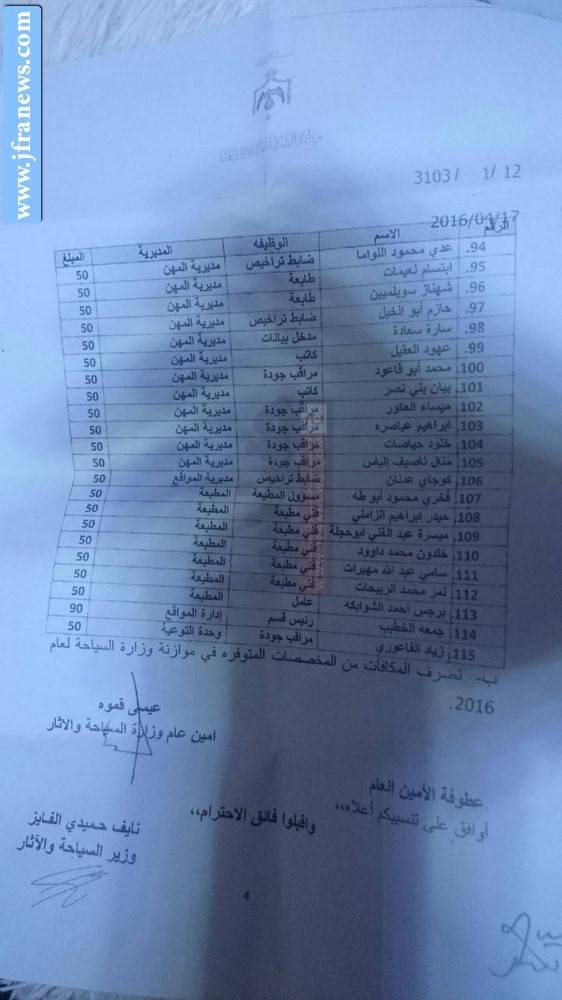 www.jfranews.com
3103/ 1/ 12
2016/04/17
الرقم الاسم الوظيفه المديرية المبلغ
94. عدي محمود اللواما ضابط تراخيص مديرية المهن 50
95. ابتسام نعيمات طابعة مديرية المهن 50
96. شهناز سويلميين طابعة مديرية المهن 50
97. حازم أبو الخيل ضابط تراخيص مديرية المهن 50
98. سارة سعادة مدخل بيانات مديرية المهن 50
99. عهود العقيل كاتب مديرية المهن 50
100. محمد أبو قاعود مراقب جودة مديرية المهن 50
101. بيان بني نصر كاتب مديرية المهن 50
102. ميساء العكور مراقب جودة مديرية المهن 50
103. ابراهيم عياصره مراقب جودة مديرية المهن 50
104. خلود حياصات مراقب جودة مديرية المهن 50
105. منال ناصيف إلياس مراقب جودة مديرية المهن 50
106. كوجاي عدنان ضابط تراخيص مديرية المواقع 50
107. فخري محمود أبو طه مسؤول المطبعة المطبعة 50
108. حيدر ابراهيم الزاملي فني مطبعة المطبعة 50
109. ميسرة عبد الغني ابوحجلة فني مطبعة المطبعة 50
110. خلدون محمد داوود فني مطبعة المطبعة 50
111. سامي عبد الله مهيرات فني مطبعة المطبعة 50
112. نمر محمد الربيحات فني مطبعة المطبعة 50
113. برجس احمد الشوابكه عامل المطبعة 50
114. جمعه الخطيب رئيس قسم إدارة المواقع 90
115. زياد الفاعوري مراقب جودة وحدة التوعية 50
ب- تصرف المكافآت من المخصصات المتوفره في موازنة وزارة السياحة لعام
2016.
عيسى قموه
امين عام وزارة السياحة والاثار
عطوفة الأمين العام
أوافق على تنسيبكم أعلاه،،
واقبلوا فائق الاحترام،،
نايف حميدي الفايز
وزير السياحة والآثار
4